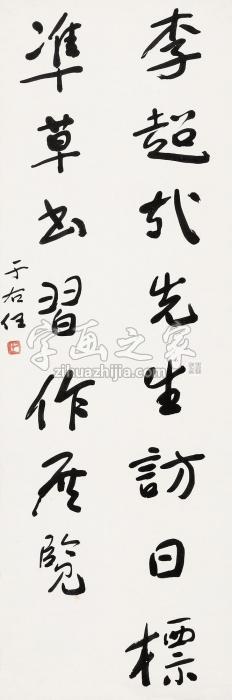 李超哉先生訪日標
準草書習作展覽
于右任
字画之家
zihuazhijia.com